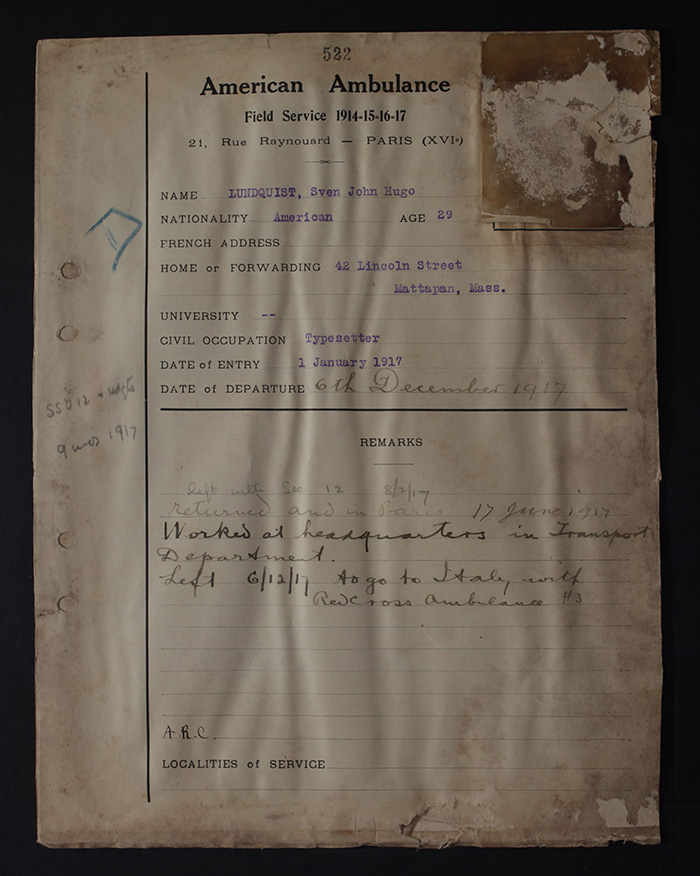 522
American Ambulance
Field Service 1914-15-16-17
21, Rue Raynouard — PARIS (XVIe)
NAME LUNDQUIST, Sven John Hugo
NATIONALITY American AGE 29
FRENCH ADDRESS
HOME or FORWARDING 42 Lincoln Street
Mattapan, Mass.
UNIVERSITY --
CIVIL OCCUPATION Typesetter
DATE of ENTRY 1 January 1917
DATE of DEPARTURE 6th December 1917
SSU 12 + Hdqts
9 mos 1917
REMARKS
left with Sec 12 8/2/17
returned and in Paris 17 June 1917
Worked at headquarters in Transport
Department.
Left 6/12/17 to go to Italy with
Red Cross Ambulance #3
A.R.C.
LOCALITIES of SERVICE